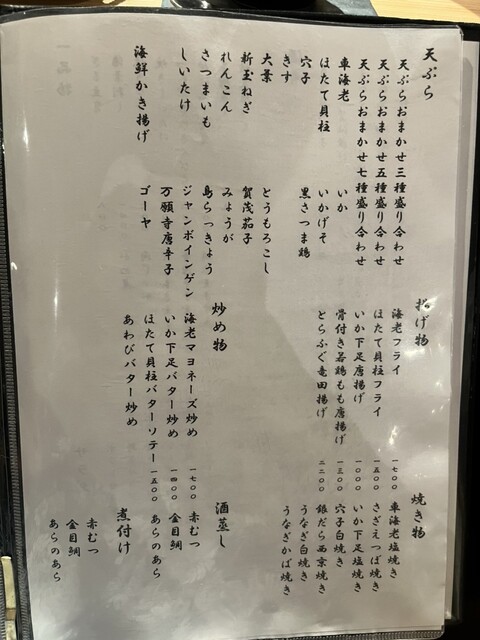 天ぷら
天ぷらおまかせ三種盛り合わせ
天ぷらおまかせ五種盛り合わせ
天ぷらおまかせ七種盛り合わせ
車海老
ほたて貝柱
穴子
きす
大葉
新玉ねぎ
れんこん
さつまいも
しいたけ
海鮮かき揚げ
いか
いかげそ
黒さつま鶏
とうもろこし
賀茂茄子
みょうが
島らっきょう
ジャンボインゲン
万願寺唐辛子
ゴーヤ
揚げ物
海老フライ 一七〇〇
ほたて貝柱フライ 一五〇〇
いか下足唐揚げ 一〇〇〇
骨付き若鶏もも唐揚げ 一三〇〇
とらふぐ竜田揚げ 二二〇〇
炒め物
海老マヨネーズ炒め 一七〇〇
いか下足バター炒め 一四〇〇
ほたて貝柱バターソテー 一五〇〇
あわびバター炒め
焼き物
車海老塩焼き
さざえつぼ焼き
いか下足塩焼き
穴子白焼き
銀だら西京焼き
うなぎ白焼き
うなぎかば焼き
酒蒸し
赤むつ
金目鯛
あらのあら
煮付け
赤むつ
金目鯛
あらのあら